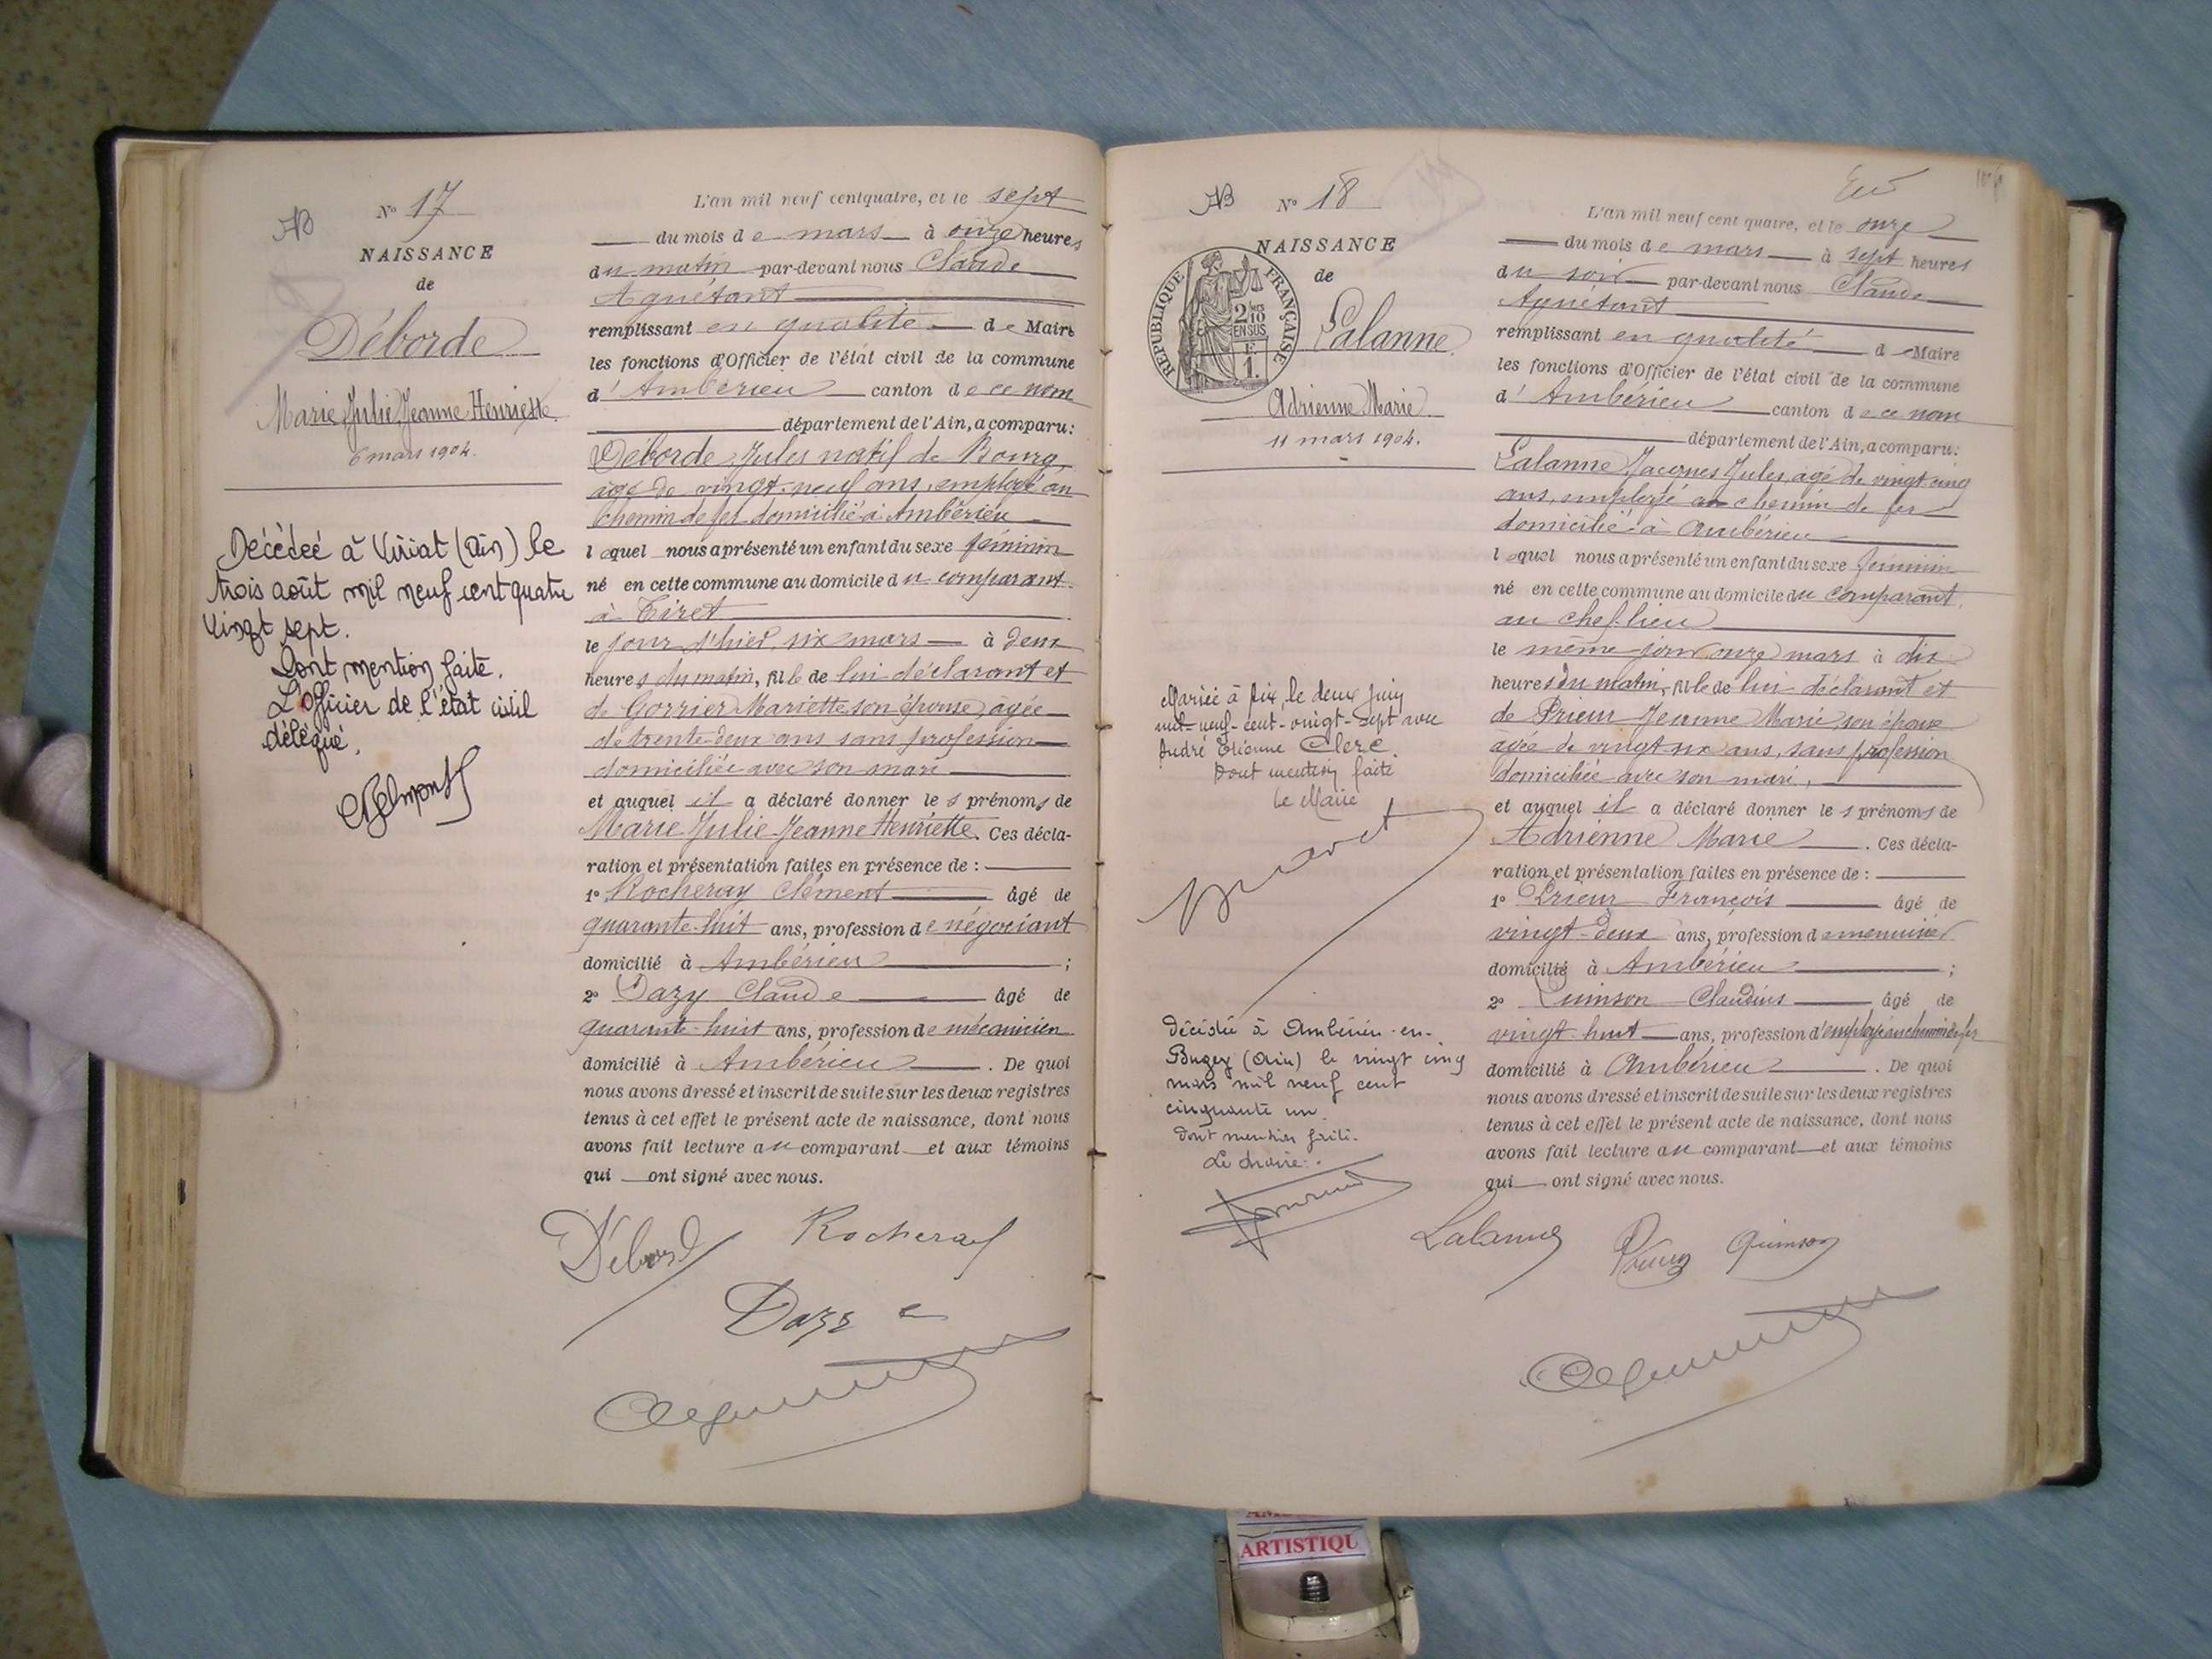 AB
N° 17
NAISSANCE
de
Déborde
Marie Julie Jeanne Henriette
6 mars 1904.
Décédeé à Viriat (Ain) le
trois août mil neuf cent quatre
vingt sept.
Dont mention faite.
L'Officier de l'état civil
délégué,
L'an mil neuf cent quatre, et le sept
du mois de mars à onze heures
du matin par-devant nous Claude
Aguétant
remplissant en qualité de Maire
les fonctions d'Officier de l'état civil de la commune
d'Ambérieu canton de ce nom
département de l'Ain, a comparu:
Déborde Jules natif de Bourg,
âgé de vingt-neuf ans, employé au
chemin de fer domicilié à Ambérieu
lequel nous a présenté un enfant du sexe féminin
né en cette commune au domicile du comparant
à Tiret
le jour d'hier, six mars à deux
heures du matin, fille de lui déclarant et
de Gorrier Mariette son épouse, âgée
de trente-deux ans sans profession
domiciliée avec son mari
et auquel il a déclaré donner les prénoms de
Marie Julie Jeanne Henriette. Ces décla-
ration et présentation faites en présence de :
1° Rocheray Clément âgé de
quarante-huit ans, profession de négociant
domicilié à Ambérieu ;
2° Dazy Claude âgé de
quarante-huit ans, profession de mécanicien
domicilié à Ambérieu . De quoi
nous avons dressé et inscrit de suite sur les deux registres
tenus à cet effet le présent acte de naissance, dont nous
avons fait lecture au comparant et aux témoins
qui ont signé avec nous.
Rocheray
AB
N° 18
NAISSANCE
de
REPUBLIQUE FRANÇAISE
2/10
EN SUS
F.
1.
Lalanne
Adrienne Marie
11 mars 1904.
Mariée à Aix, le deux juin
mil-neuf-cent-vingt-sept avec
André Etienne Clerc.
Dont mention faite
Le Maire
Décédée à Ambérieu-en-
Bugey (Ain) le vingt cinq
mars mil neuf cent
cinquante un
Dont mention faite.
Le Maire:
L'an mil neuf cent quatre, et le onze
du mois de mars à sept heures
du soir par-devant nous Claude
Aguétant
remplissant en qualité de Maire
les fonctions d'Officier de l'état civil de la commune
d'Ambérieu canton de ce nom
département de l'Ain, a comparu:
Lalanne Jacques Jules, âgé de vingt cinq
ans, employé au chemin de fer
domicilié à Ambérieu
lequel nous a présenté un enfant du sexe féminin
né en cette commune au domicile du comparant,
au chef-lieu
le même jour onze mars à dix
heures du matin, fille de lui déclarant et
de Prieur Jeanne Marie, son épouse
âgée de vingt-six ans, sans profession
domiciliée avec son mari,
et auquel il a déclaré donner les prénoms de
Adrienne Marie . Ces décla-
ration et présentation faites en présence de :
1° Prieur François âgé de
vingt-deux ans, profession de menuisier
domicilié à Ambérieu ;
2° Quinson Claudius âgé de
vingt-huit ans, profession d'employé au chemin de fer
domicilié à Ambérieu . De quoi
nous avons dressé et inscrit de suite sur les deux registres
tenus à cet effet le présent acte de naissance, dont nous
avons fait lecture au comparant et aux témoins
qui ont signé avec nous.
Lalanne Prieur Quinson
ARTISTIQU